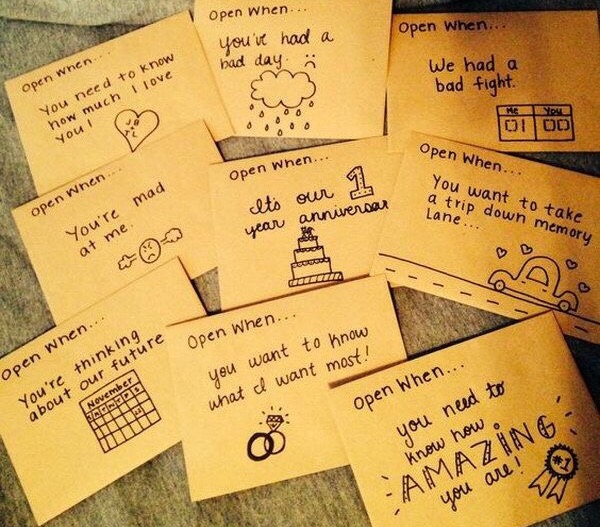 Open When...
You need to know
how much I love
you!
Open When...
You've had a
bad day.
Open When...
We had a
bad fight.
Me You
01 00
Open When...
You're mad
at me.
Open When...
It's our 1
year anniversar
Open When...
You want to take
a trip down memory
Lane...
Open When...
You're thinking
about our future
November
Open When...
you want to know
what I want most!
Open When...
you need to
know how
AMAZING
you are!
#1